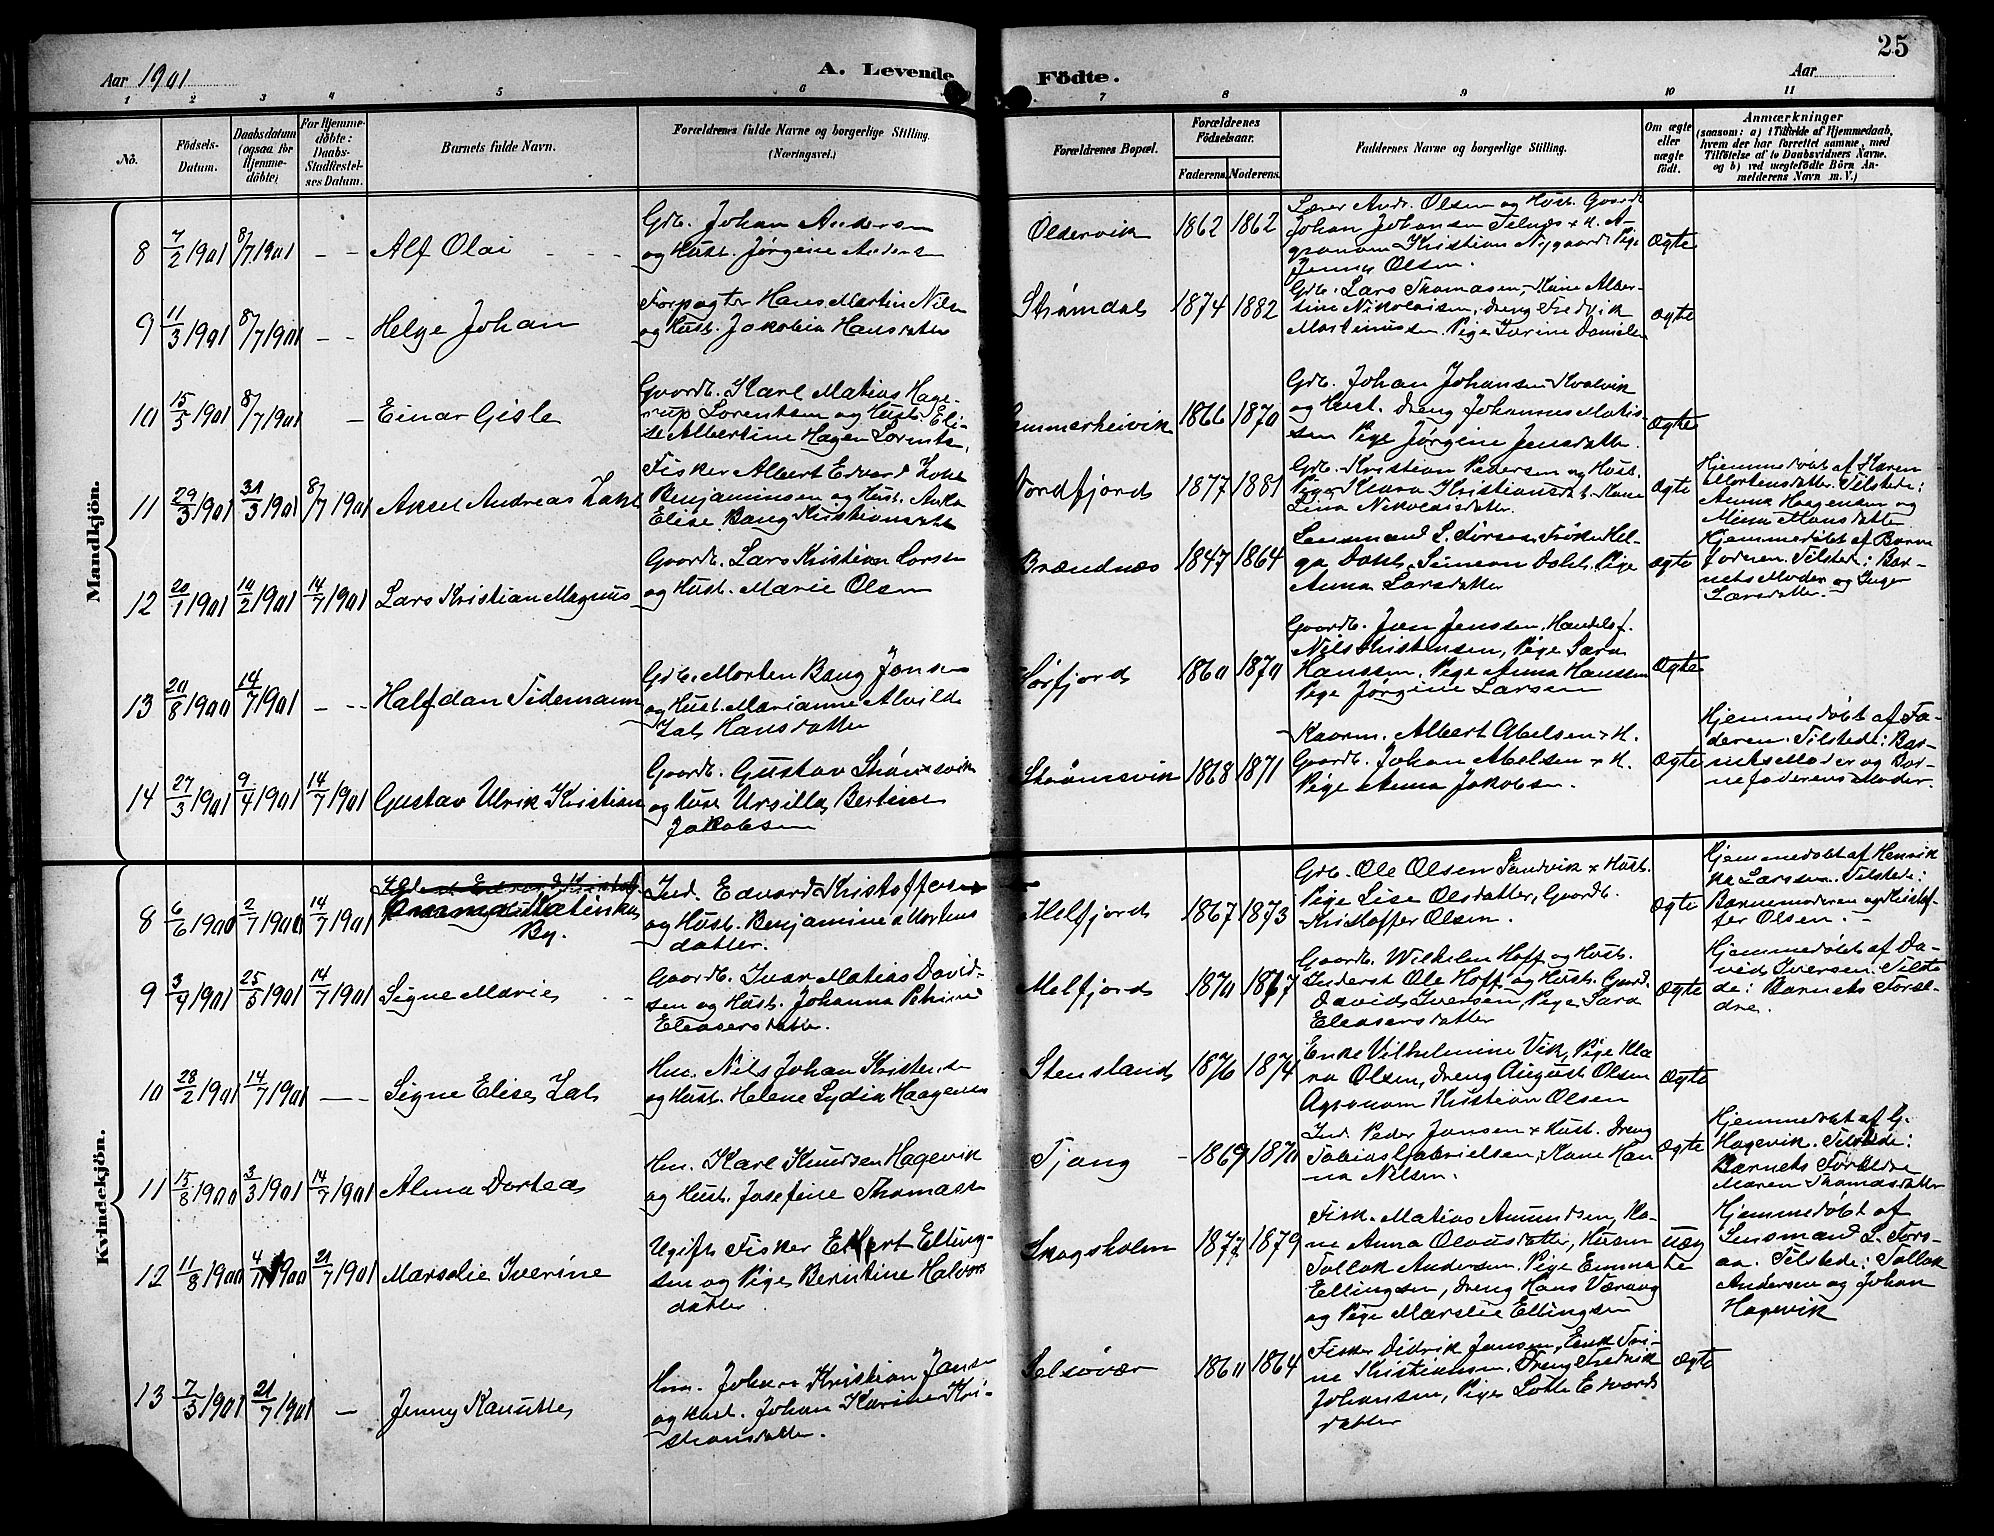 25
Aar 1901
A. Levende
Födte.
Aar
1 2 3 4 5 6 7 8 9 10 11
No.
Födsels-
Datum.
Daabsdatum
(ogsaa for
Hjemme-
döbte)
For Hjemme-
döbte:
Daabs-
Stadfæstel-
ses Datum.
Barnets fulde Navn.
Forældrenes fulde Navne og borgerlige Stilling.
(Næringsvei.)
Forældrenes Bopæl.
Forældrenes
Födselsaar.
Faderens. Moderens.
Faddernes Navne og borgerlige Stilling.
Om ægte
eller
uægte
födt.
Anmærkninger
(saasom: a) i Tilfælde af Hjemmedaab,
hvem der har forrettet samme, med
Tilföielse af to Daabsvidners Navne.
og b) ved uægtefödte Börn An-
melderens Navn m. V.)
Mandkjön.
8 7/2 1901 8/7 1901 - - Alf Olai - - -
Gdb. Johan Andersen
og Hust. Jørgine Andersen
Oldervik 1862 1862
Lærer Andr. Olsen og Hust. Gaardb.
Johan Johansen Telnes + H. A-
gronom Kristian Nygaard. Pige
Jenny Olsen.
Ægte
9 11/3 1901 8/7 1901 - - Helge Johan
Forpagter Hans Martin Nilsen
og Hust. Jakobia Hansdatter
Strømdal 1874 1882
Gdb. Lars Thomasen, Kone Alber-
tine Nikolaisen, dreng Fredrik
Martinussen. Pige Iverine Danielsen
ægte
10 15/3 1901 8/7 1901 - Einar Gisle
Gaardb. Karl Matias Hage-
rup Lorentsen og Hust. Eli-
se Albertine Hagen Lorents.
1866 1870
Gdb. Johan Johansen Kvalvik
og Hust. dreng Johannes Matis-
sen Pige Jørgine Jensdatter.
Ægte
11 29/3 1901 31/3 1901 8/7 1901 Aksel Andreas Zakl
Fisker Albert Edvard
Benjaminsen og Hust. Anka
Elise Bang Kristiansdatter
Nordfjord 1877 1881
Gdb. Kristian Pedersen og Hust.
Pige Klara Kristiansdat. Kone
Lina Nikolaisdatter.
Ægte
Hjemmedøbt af Karen
Mortensdatter. Tilstede:
Anna Haagensen og
Mina Monsdatter
12 20/1 1901 10/2 1901 14/7 1901 Lars Kristian Magnus
Gaardb. Lars Kristian Larsen
og Hust. Marie Olsen
Brændnæs 1847 1864
Lensmand L. Forsaa, Frøken Hel-
ga Dahl, Simeon Dahl. Pige
Anna Larsdatter
ægte
Hjemmedøbt af Barne-
fonden. Tilstede: Bar-
nets Moder og Inger
Larsdatter.
13 20/8 1900 14/7 1901 - - Halfdan Tidemann
Gdb. Morten Bang Jensen
og Hust. Marianne Alvilde
Zal. Hansdatter
Sørfjord 1860 1870
Gaardb. Jon Jenssen, Handelsf.
Nils Kristensen, Pige Sara
Hanssen, Pige Anna Hanssen
Pige Jørgine Larsen
Ægte
14 27/3 1901 9/4 1901 14/7 1901 Gustav Ulrik Kristian
Gaardb. Gustav Strømsvik
og Hust. Ursilla Bertine
Jakobsen
Strømsvik 1868 1871
Kaarm. Albert Abelsen + H.
Gaardb. Johan Abelsen + H.
Pige Anna Jakobsen.
Ægte
Hjemmedøbt af Fa-
deren. Tilstede: Bar-
nets Moder og Bar-
nefaderens Moder.
Kvindekjön.
8 6/6 1900 2/7 1900 14/7 1901 Emma Katinka
By.
Ind. Edvard Kristoffersen
og Hust. Benjamine Mortens
datter.
Melfjord 1867 1873
Gdb. Ole Olsen Sandvik + Hust.
Pige Lise Olsdatter, Gaardb.
Kristoffer Olsen.
Ægte
Hjemmedøbt af Henrik-
ke Larssen. Tilstede:
Barnemoderen og Kristof-
fer Olsen. -
9 3/4 1901 25/5 1901 14/7 1901 Signe Marie
Gaardb. Ivar Matias David-
sen og Hust. Johanna Petrine
Eleasersdatter.
Melfjord 1870 1867
Gaardb. Wilhelm Hoff og Hust.
Inderst Ole Hoff og Hust. Gaardb.
David Iversen, Pige Sara
Eleasersdatter
Ægte
Hjemmedøbt af Da-
vid Iversen. Tilste-
de: Barnets Foræl-
dre.
10 28/2 1901 14/7 1901 - - Signe Elise Zal.
Hm. Nils Johan Kristensen
og Hust. Helene Lydia Haagensen
Stensland 1876 1874
Enke Vilhelmine Vik, Pige Kla-
ra Olsen, dreng August Olsen
Agronom Kristian Olsen
Ægte
11 15/8 1900 3/3 1901 14/7 1901 Alma Dortea
Hm. Karl Knudsen Hagevik
og Hust. Josefine Thomasen
Tjong 1869 1870
Ind. Peder Jansen + Hust. Dreng
Tobias Gabrielsen, Kone Han-
na Nilsen.
Ægte
Hjemmedøbt af G.
Hagevik. Tilstede:
Barnets Forældre
Maren Thomasdatter
12 11/8 1900 4/11 1900 21/7 1901 Marselie Iverine
Ugift Fisker Ellert Elling-
sen og Pige Berntine Halvors
datter
Skogsholm 1877 1879
Fisk. Matias Amundsen, Ko-
ne Anna Olausdatter, Husm.
Tollak Andersen. Pige Emma
Ellingsen, dreng Hans Værang
og Pige Marselie Ellingsen
uæg
te
Hjemmedøbt af
Lensmand L. Fors-
aa. Tilstede: Tollak
Andersen og Johan
Hagevik
13 7/3 1901 21/7 1901 - Jenny Kanutte
Hm. Johan Kristian Jansen
og Hust. Johan Karine Kri-
stiansdatter.
Selsøvær 1860 1864
Fisker Didrik Jensen, Enk. Tri-
ne Kristiansen. Dreng Fredrik
Johansen, Pige Lotte Edvards
datter
Ægte